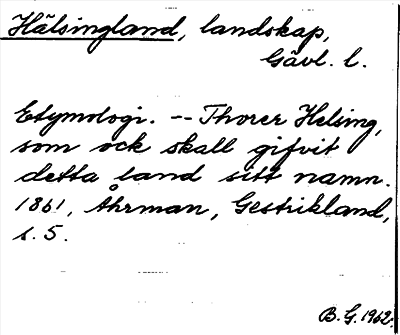 Hälsingland, landskap,
Gävl. l.
Etymologi. -- Thorer Helsing,
som ock skall gifvit
detta land sitt namn.
1861, Åhrman, Gestrikland,
s. 5.
B. G. 1962.